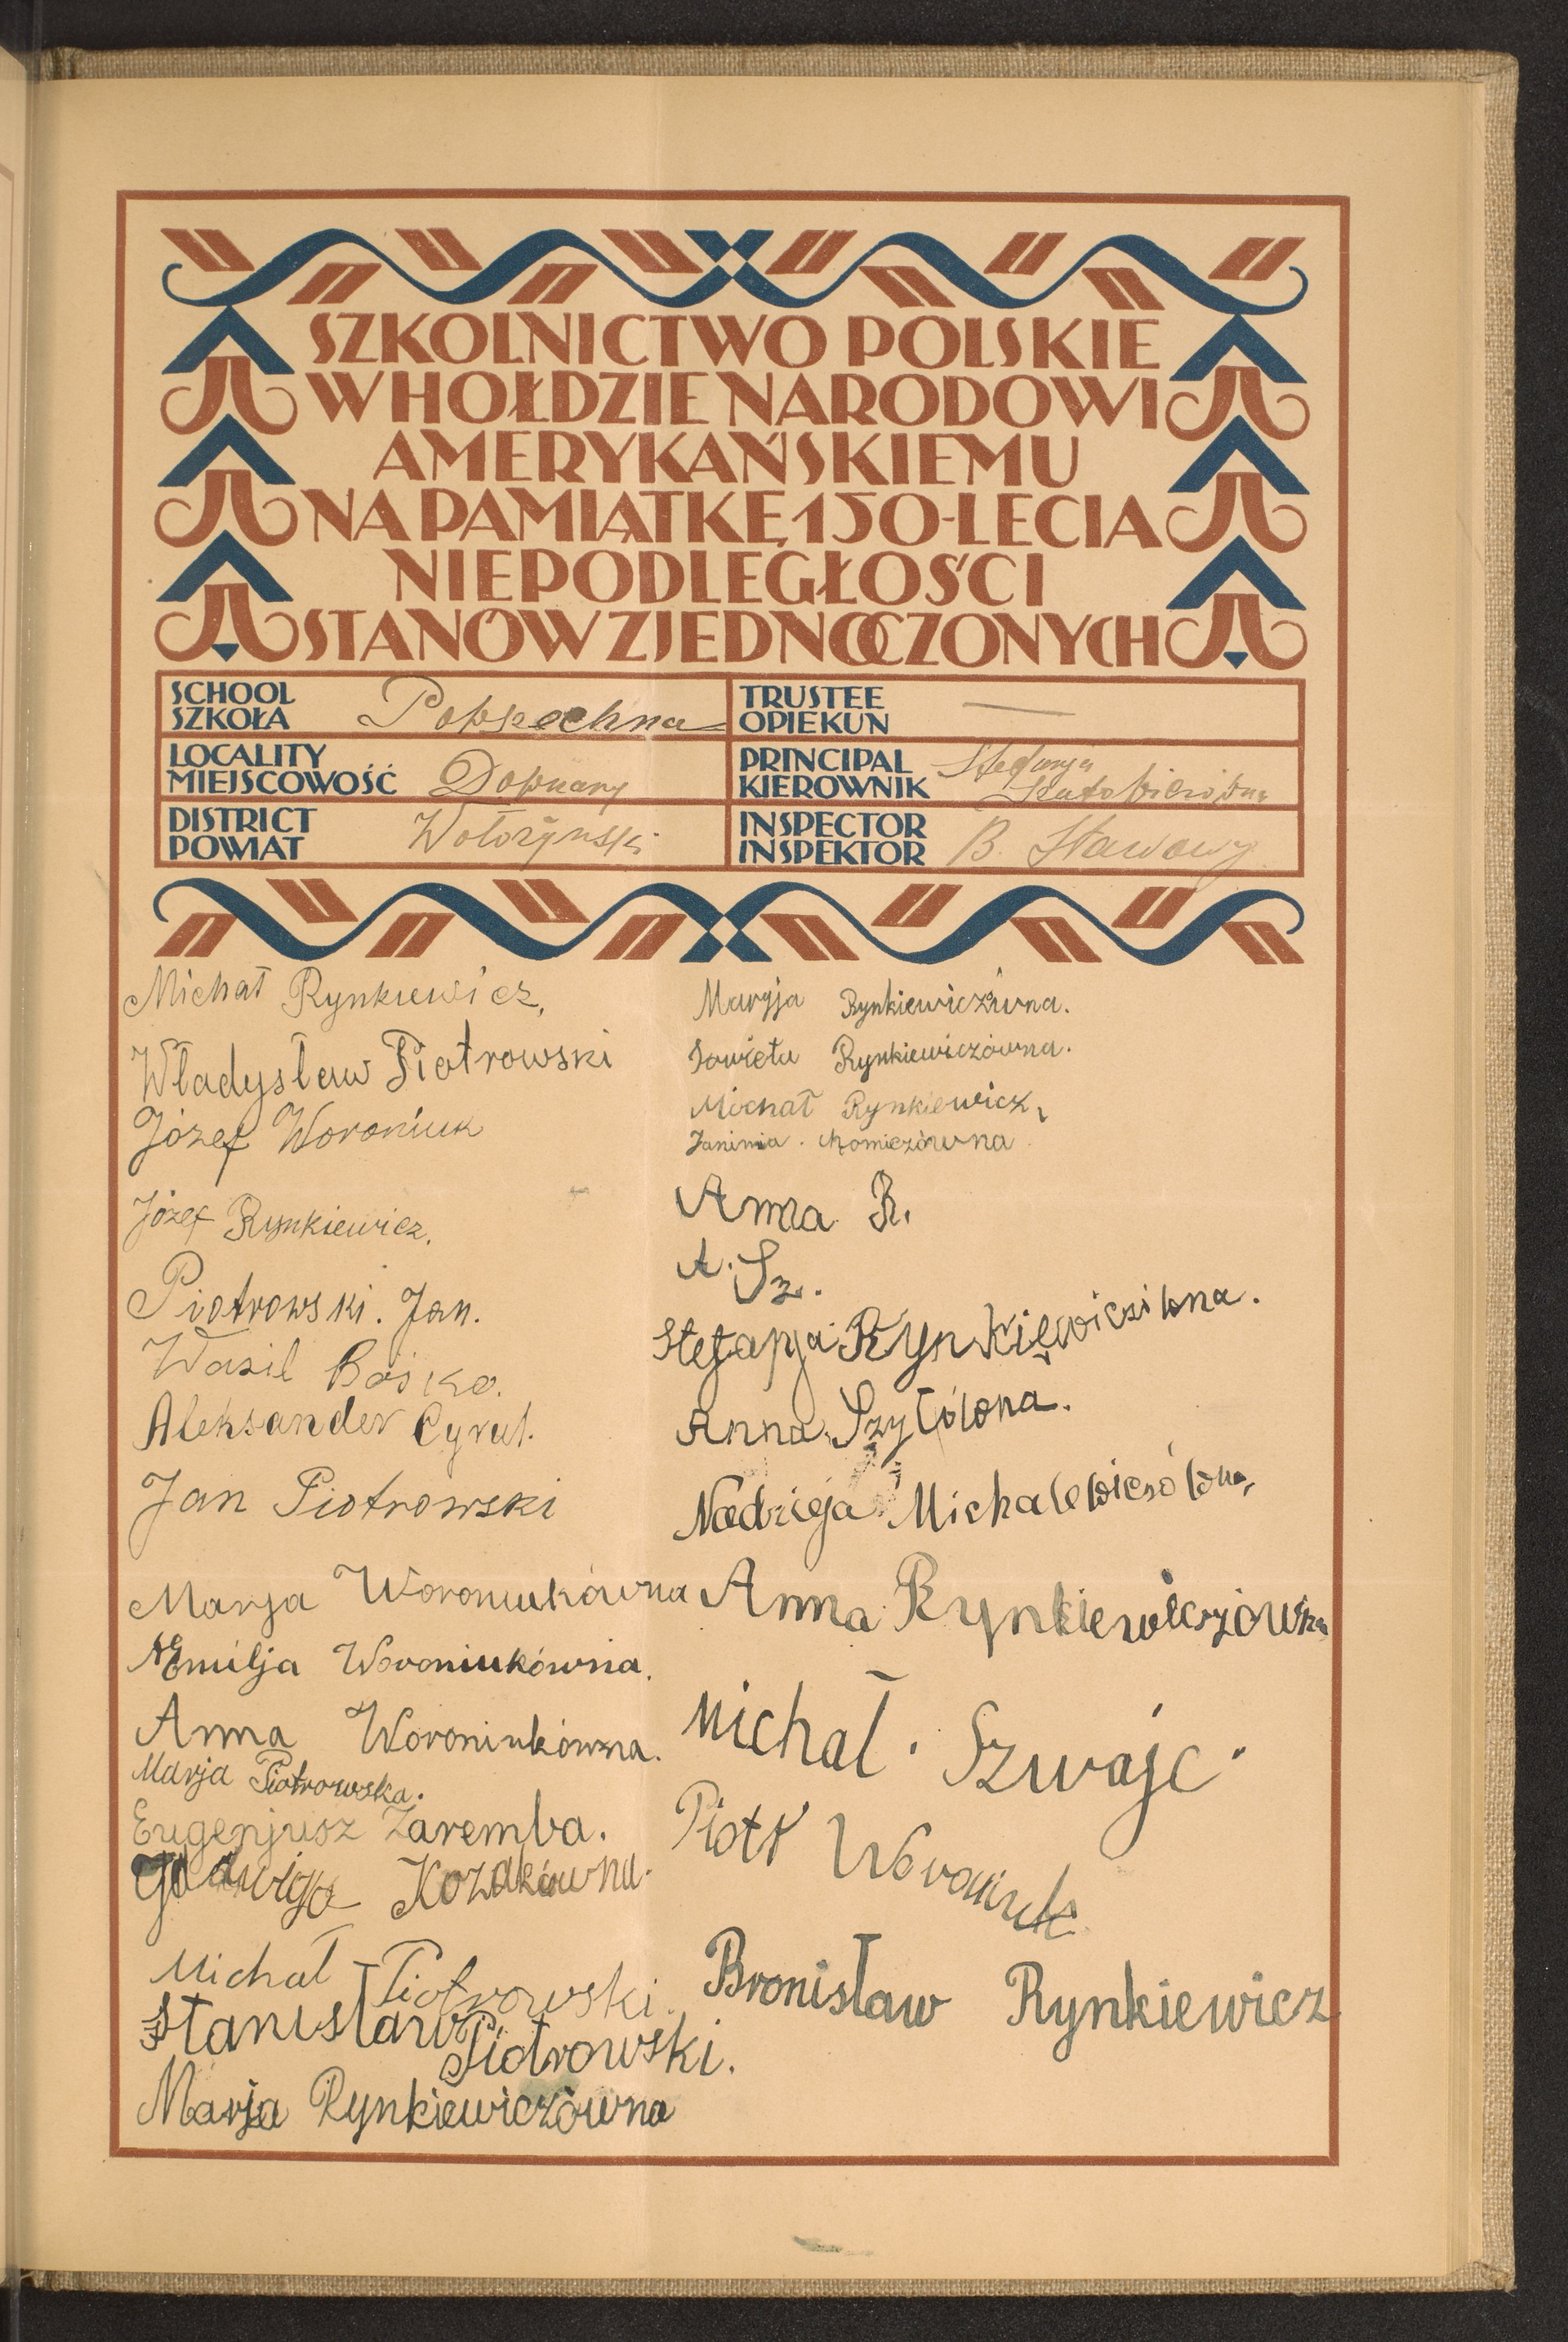 SZKOLNICTWO POLSKIE
W HOŁDZIE NARODOWI
AMERYKAŃSKIEMU
NA PAMIĄTKĘ 150-LECIA
NIEPODLEGŁOŚCI
STANÓW ZJEDNOCZONYCH
SCHOOL
SZKOŁA Powszechna
TRUSTEE
OPIEKUN —
LOCALITY
MIEJSCOWOŚĆ
PRINCIPAL
KIEROWNIK Stefanja
DISTRICT
POWIAT Wołożyński
INSPECTOR
INSPEKTOR B. Stawowy
Michał Rynkiewicz,
Władysław Piotrowski
Józef Woroniuk
Józef Rynkiewicz.
Piotrowski. Jan.
Wasil Boisko.
Aleksander Cyrul.
Jan Piotrowski
Marja Woroniukówna
Emilja Woroniukówna.
Anna Woroniukówna.
Marja Piotrowska.
Eugenjusz Zaremba.
Jadwiga Kozakówna.
Michał Piotrowski.
Stanisław Piotrowski.
Marja Rynkiewiczówna
Maryja Rynkiewiczówna.
Rynkiewiczówna.
Michał Rynkiewicz,
Janinia. Chomiczówna
Anna R.
A. Sz.
Stefanja Rynkiewiczówna.
Anna Szyłówna.
Nadzieja Michalewiczówna,
Anna Rynkiewiczówna
Michał. Szwajc.
Piotr Woroniuk
Bronisław Rynkiewicz